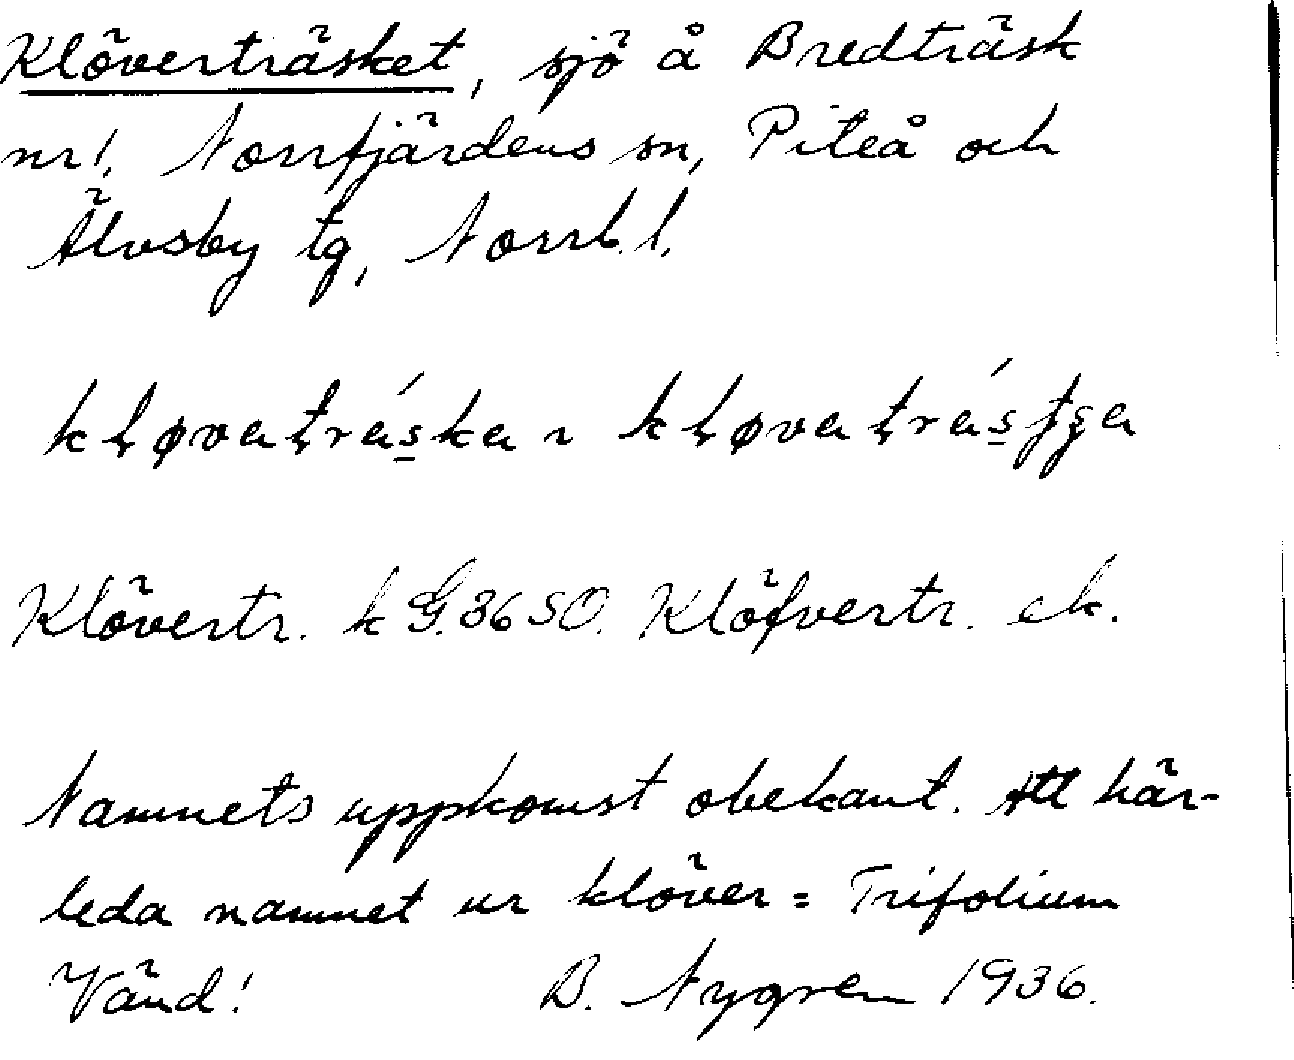 Klöverträsket, sjö å Bredträsk
nr 1, Norrfjärdens sn, Piteå och
Älvsby tg, Norrb. l.
kļøvaţrás̲ka ~ kļøvaţrás̲ʄʓa
Klövertr. k G. 3650. Klöfvertr. ek.
Namnets uppkomst obekant. Att här-
leda namnet ur klöver = Trifolium
Vänd! B. Nygren 1936.